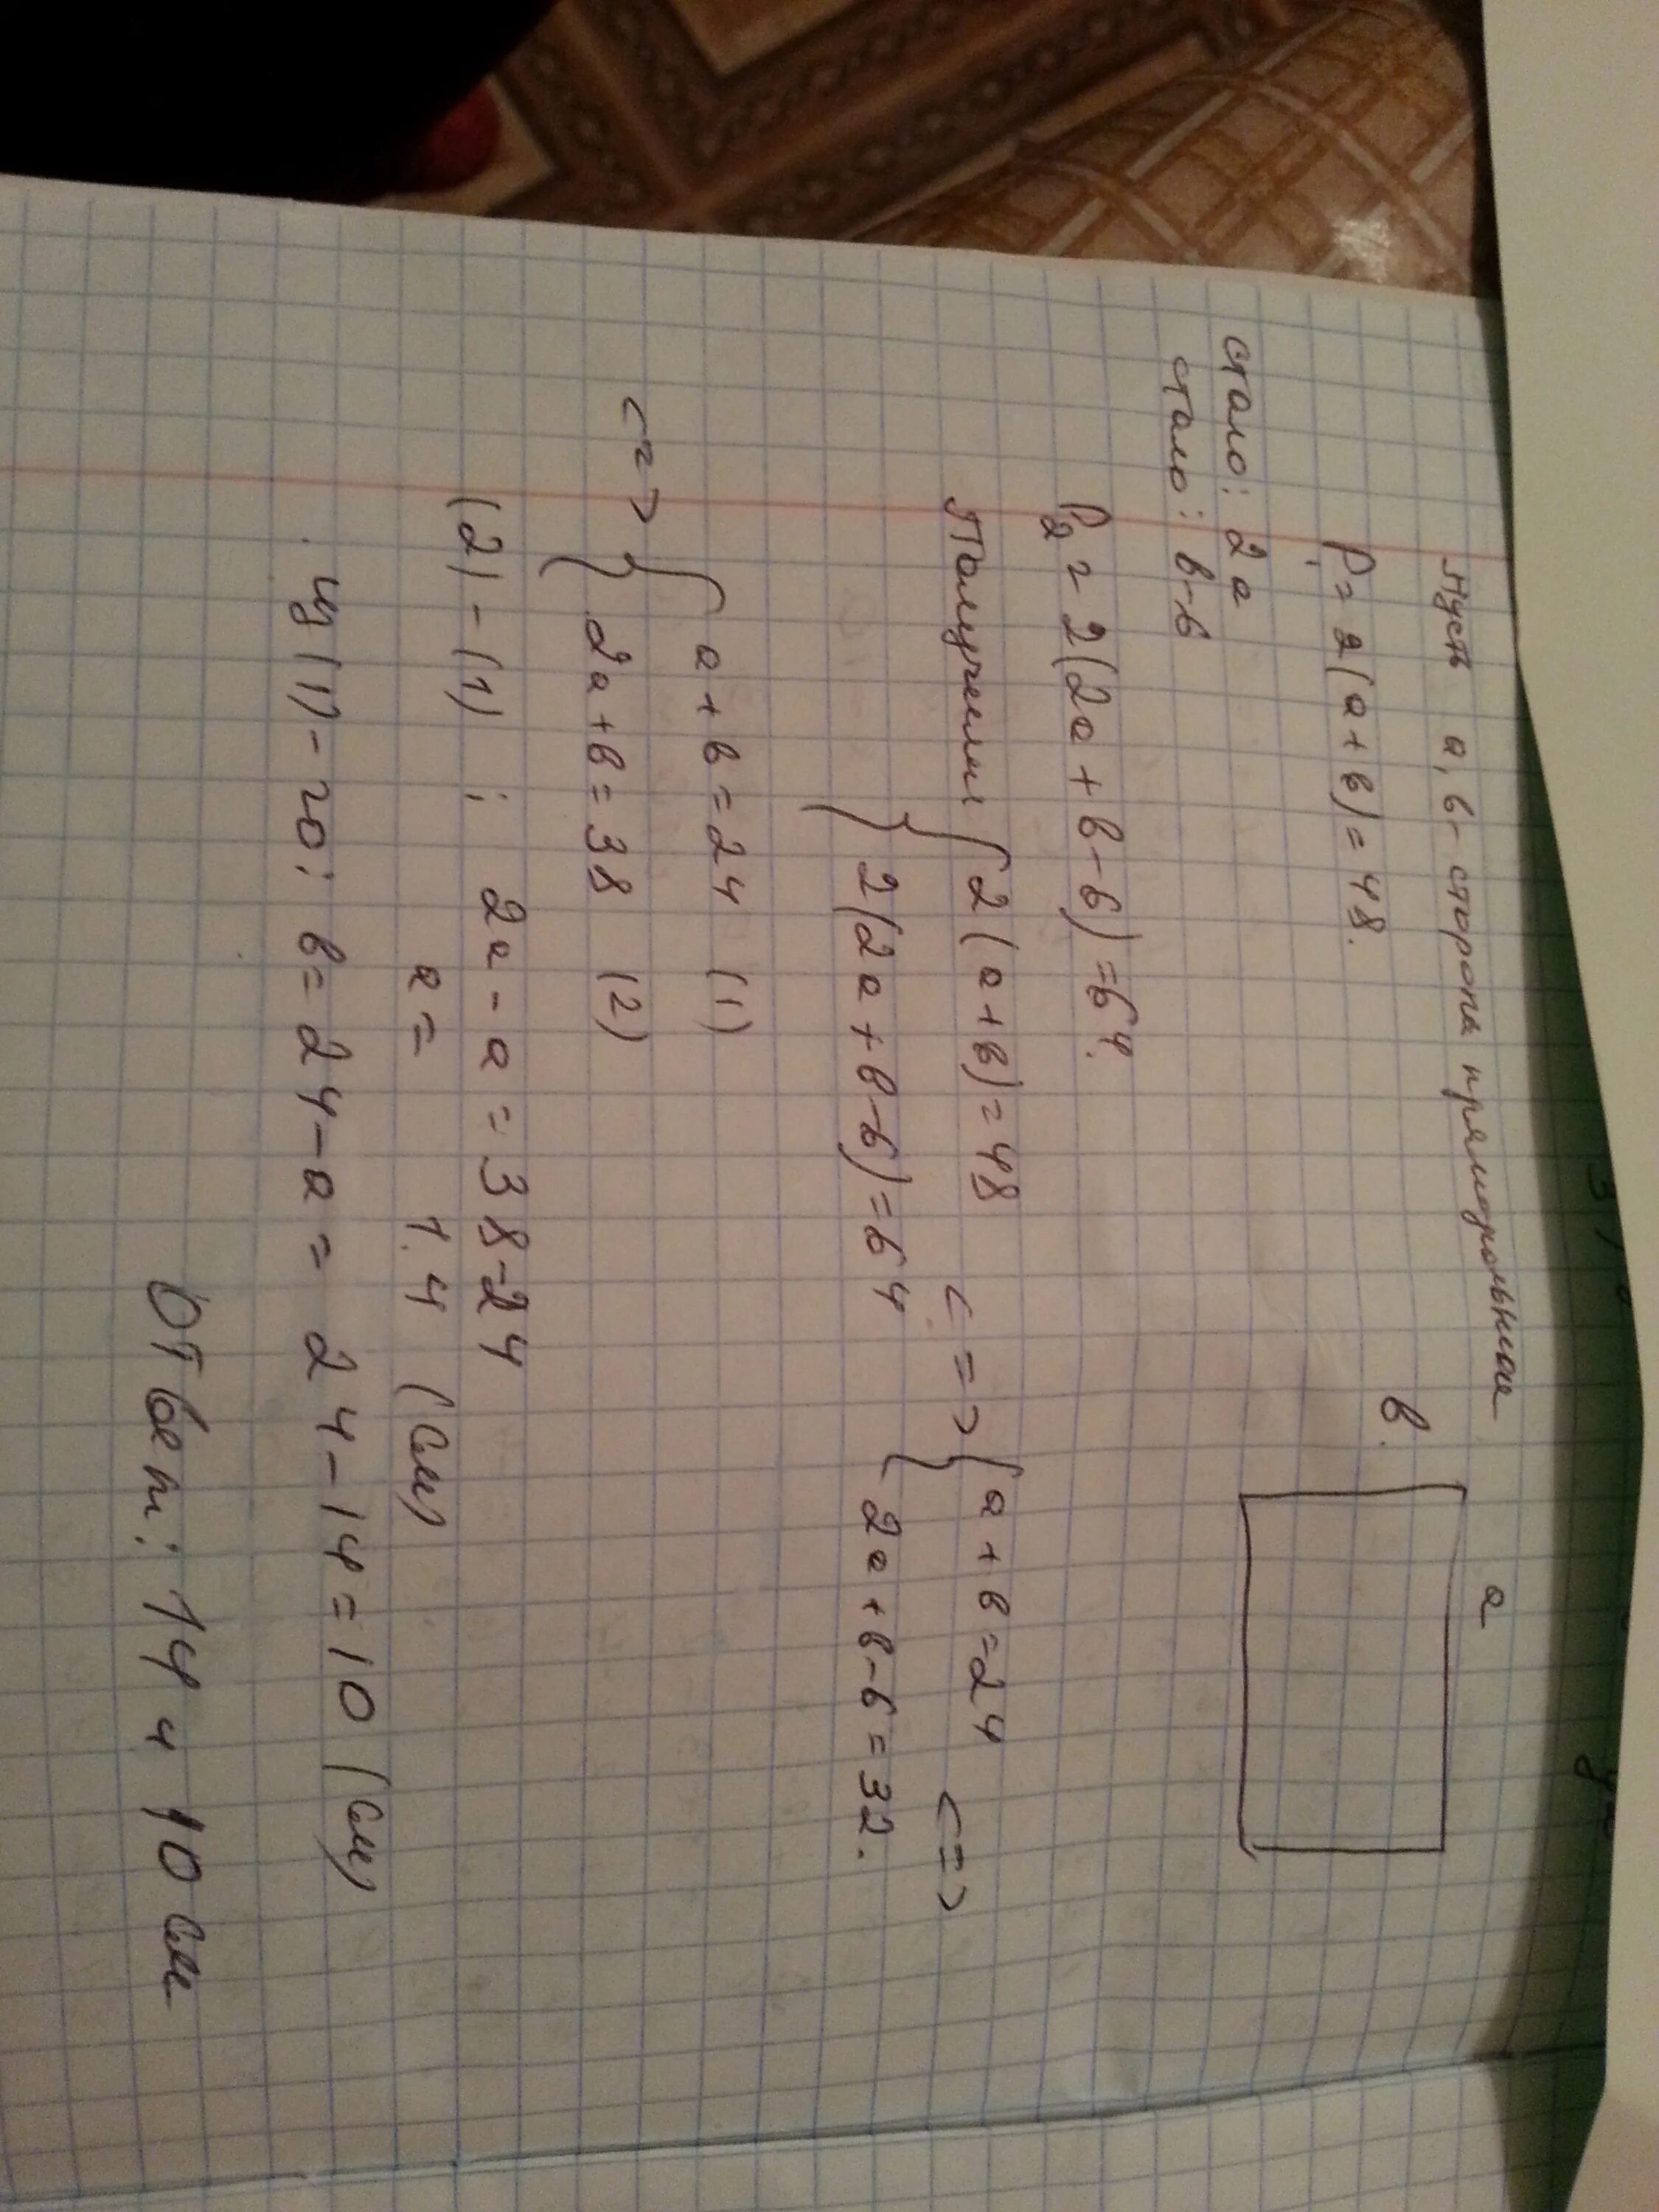 Пусть a, b - стороны прямоугольника
a
b
P₁ = 2(a+b) = 48.
стало: 2a
стало: b-6
P₂ = 2(2a+b-6) = 64.
Получим { 2(a+b)=48 <=> { a+b=24 <=>
2(2a+b-6)=64 2a+b-6=32.
<=> { a+b=24 (1)
2a+b=38 (2)
(2)-(1): 2a-a=38-24
a= 14 (см)
из (1)-го: b=24-a= 24-14=10 (см)
Ответ: 14 и 10 см